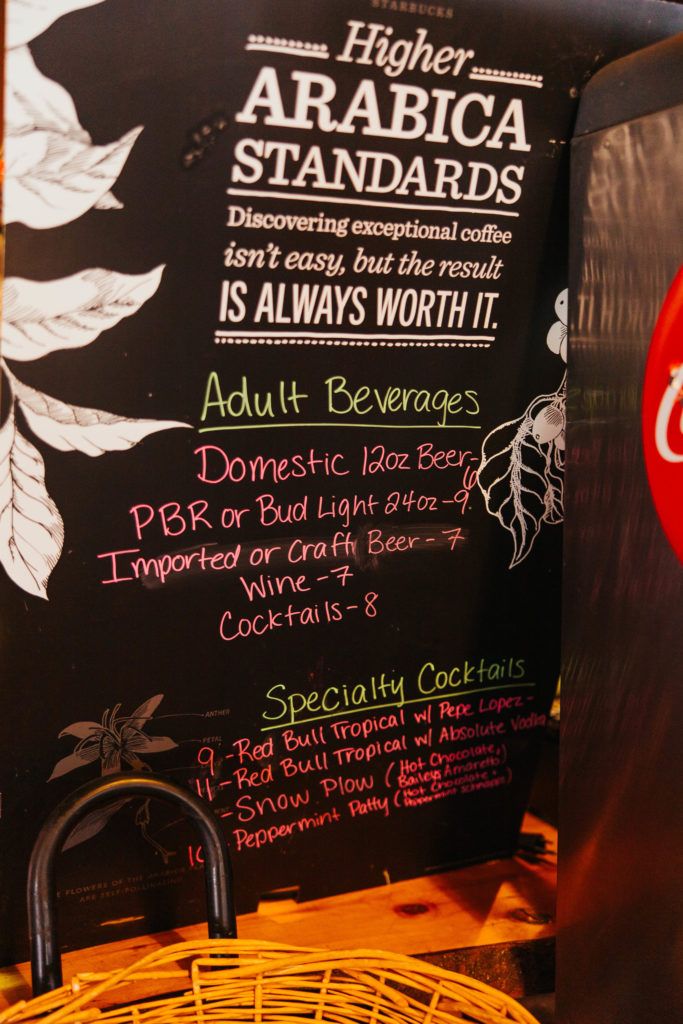 STARBUCKS
Higher
ARABICA
STANDARDS
Discovering exceptional coffee
isn't easy, but the result
IS ALWAYS WORTH IT.
Adult Beverages
Domestic 12oz Beer-6
PBR or Bud Light 24oz-9
Imported or Craft Beer-7
Wine-7
Cocktails-8
Specialty Cocktails
9-Red Bull Tropical w/ Pepe Lopez-
11-Red Bull Tropical w/ Absolute Vodka
-Snow Plow (Hot Chocolate,
Baileys Amaretto)
Peppermint Patty (Hot Chocolate,
Peppermint Schnapps)
ANTHER
PETAL
FLOWERS OF THE ARABICA
ARE SELF-POLLINATING